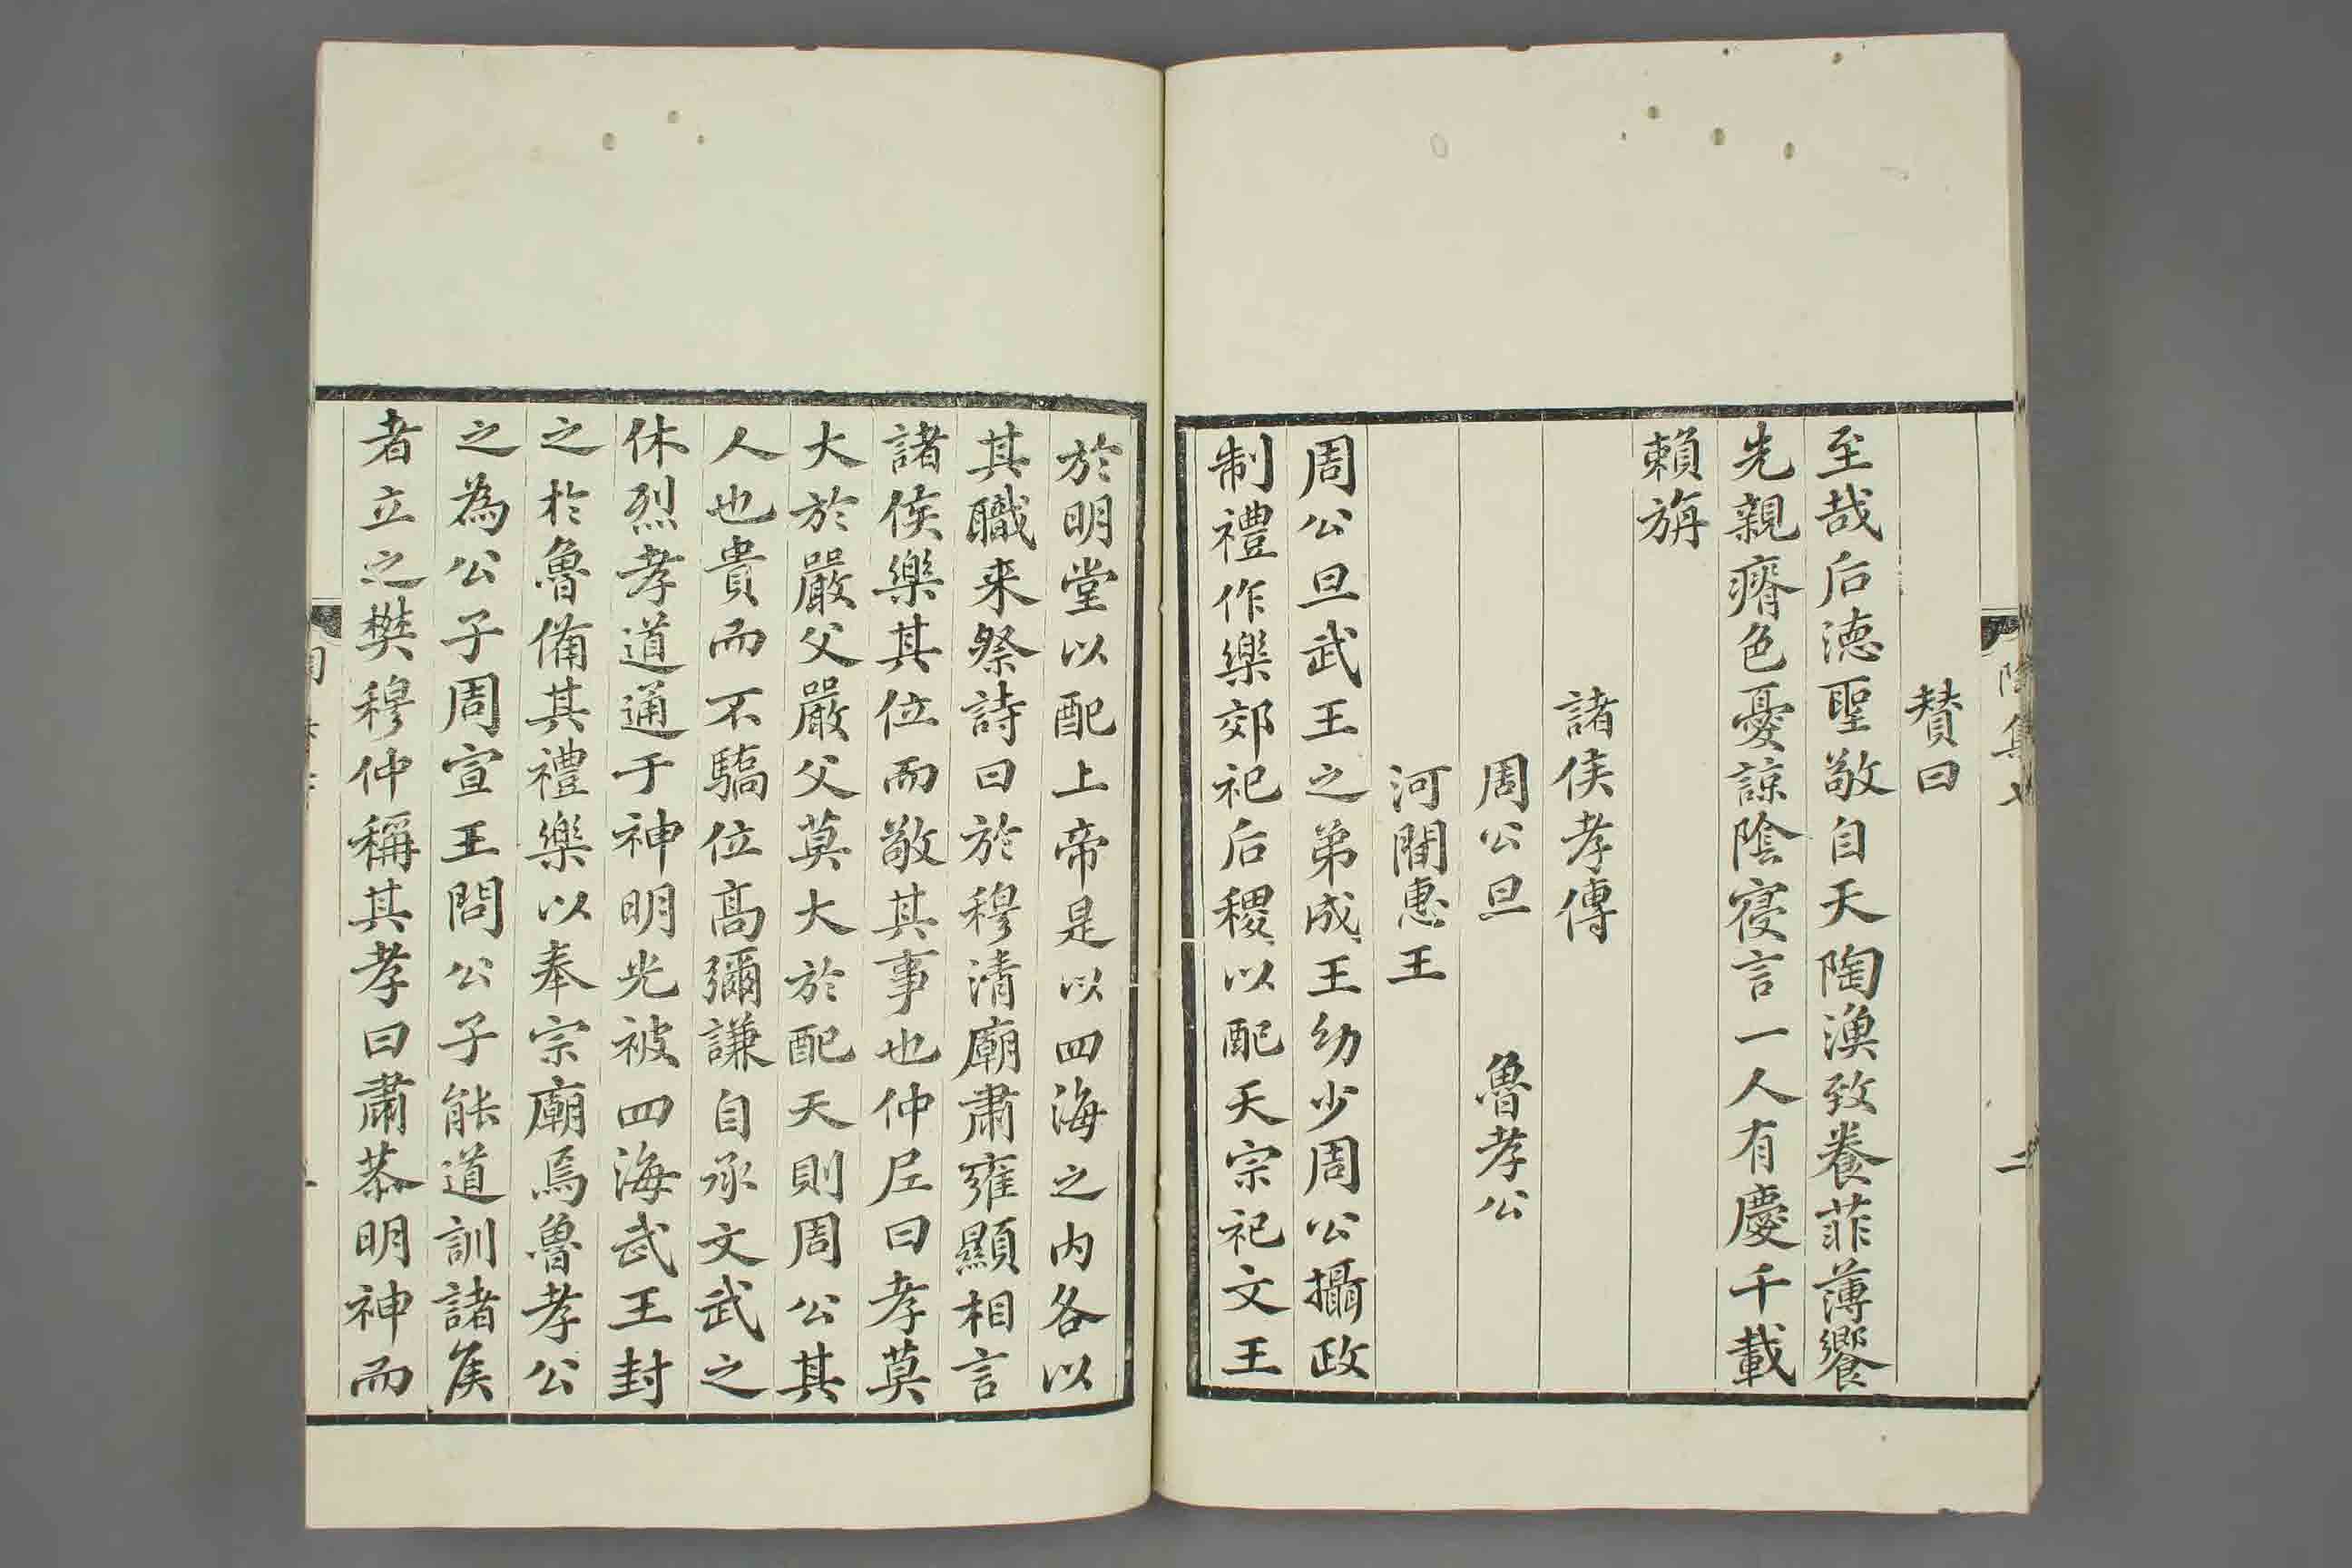 贊曰
至哉后徳聖敬自天陶漁致養菲薄饗
先親瘠色憂諒陰寑言一人有慶千載
賴旃
諸侯孝傳
周公旦　魯孝公
河間惠王
周公旦武王之弟成王幼少周公攝政
制禮作樂郊祀后稷以配天宗祀文王
於明堂以配上帝是以四海之内各以
其職来祭詩曰於穆清廟肅雍顯相言
諸侯樂其位而敬其事也仲尼曰孝莫
大於嚴父嚴父莫大於配天則周公其
人也貴而不驕位髙彌謙自承文武之
休烈孝道通于神明光被四海武王封
之於魯備其禮樂以奉宗廟焉魯孝公
之為公子周宣王問公子能道訓諸侯
者立之樊穆仲稱其孝曰肅恭明神而